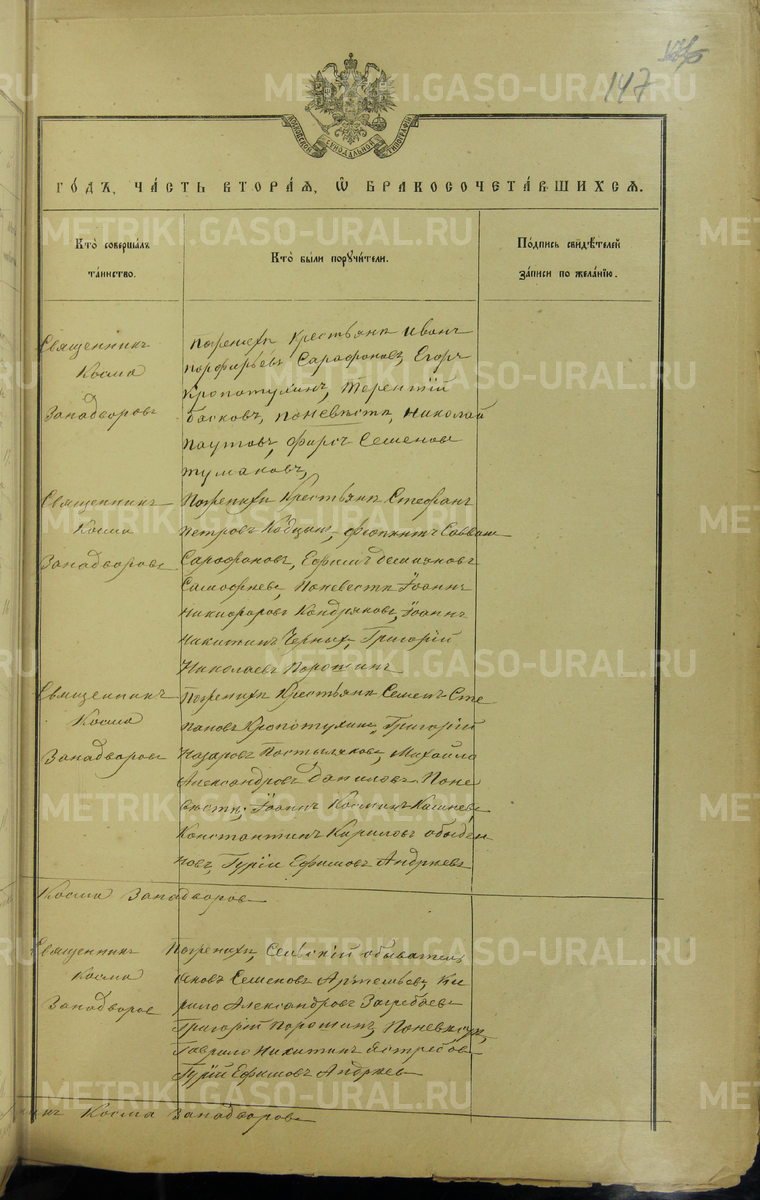 147
МОСКОВСКОЙ СѴНОДАЛЬНОЙ ТИПОГРАФІИ
ГО́ДЪ, ЧА́СТЬ ВТОРА́Я, Ѡ҆ БРАКОСОЧЕТА́ВШИХСЯ.
Кто̀ соверша́лъ та́инство.
Кто̀ бы́ли порꙋчи́тели.
По́дпись свидѣ́телей за́писи по жела́нїю.
Священникъ
Косма
Западворовъ
Пожених Крестьяне Иванъ
Порфирьевъ Сарафановъ, Егоръ
Кропотухинъ, Терентій
Басковъ, Поневесте, Николай
Паутовъ, Фирсъ Семеновъ
Тумаковъ,
Священникъ
Косма
Западворовъ
Пожених Крестьяне Стефанъ
Петровъ Савваи
Сарафановъ, Ефимъ
Поневесте Іоаннъ
Никифоровъ Кондряковъ, Іоаннъ
Никитинъ Черных, Григорій
Николаевъ Порошинъ
Священникъ
Косма
Западворовъ
Пожених Крестьяне Семенъ Сте
пановъ Кропотухинъ, Григорій
Назаровъ Постыляковъ, Михайло
Александровъ Даниловъ Поне
весте, Іоаннъ Косминъ
Константинъ Кириловъ Обыден
новъ, Гурій Ефимовъ Андреевъ
Косма Западворовъ
Священникъ
Косма
Западворовъ
Пожених, Сельскій обыватель
Яковъ Семеновъ Артемьевъ, Ки
рило Александровъ Загребаевъ
Григорій Порошинъ, Поневесте,
Гаврило Никитинъ Ястребовъ
Гурій Ефимовъ Андреевъ
Косма Западворовъ
METRIKI.GASO-URAL.RU